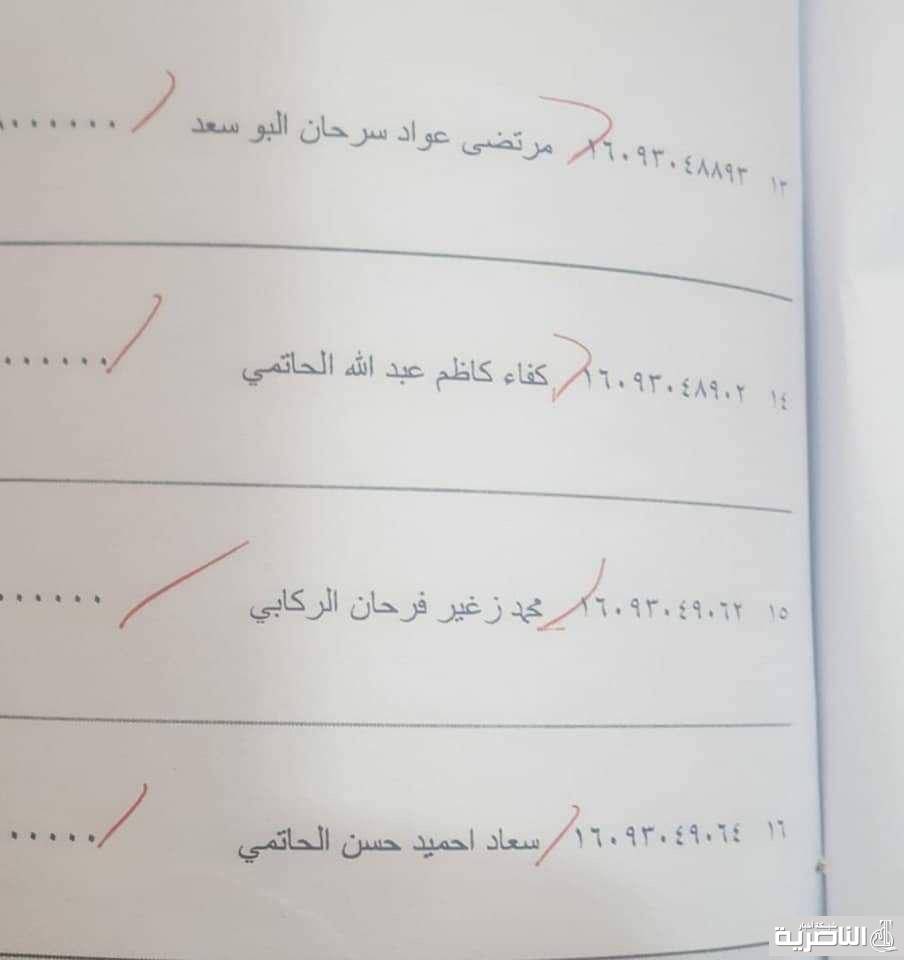 ١٣ ١٦٠٩٣٠٤٨٨٩٣ مرتضى عواد سرحان البو سعد .......
١٤ ١٦٠٩٣٠٤٨٩٠٢ كفاء كاظم عبد الله الحاتمي .......
١٥ ١٦٠٩٣٠٤٩٠٦٢ محمد زغير فرحان الركابي ......
١٦ ١٦٠٩٣٠٤٩٠٦٤ سعاد احميد حسن الحاتمي ......
شبكة أخبار
الناصرية